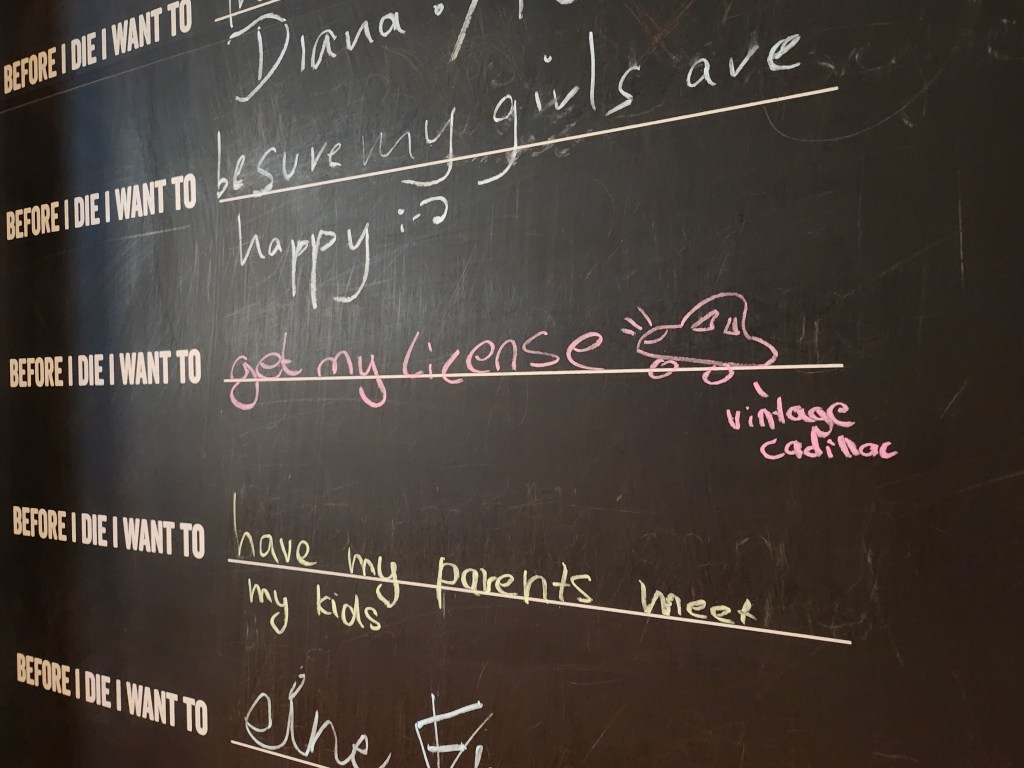 BEFORE I DIE I WANT TO
Diana
BEFORE I DIE I WANT TO be sure my girls are
happy :-)
BEFORE I DIE I WANT TO get my license
vintage
cadillac
BEFORE I DIE I WANT TO have my parents meet
my kids
BEFORE I DIE I WANT TO eine